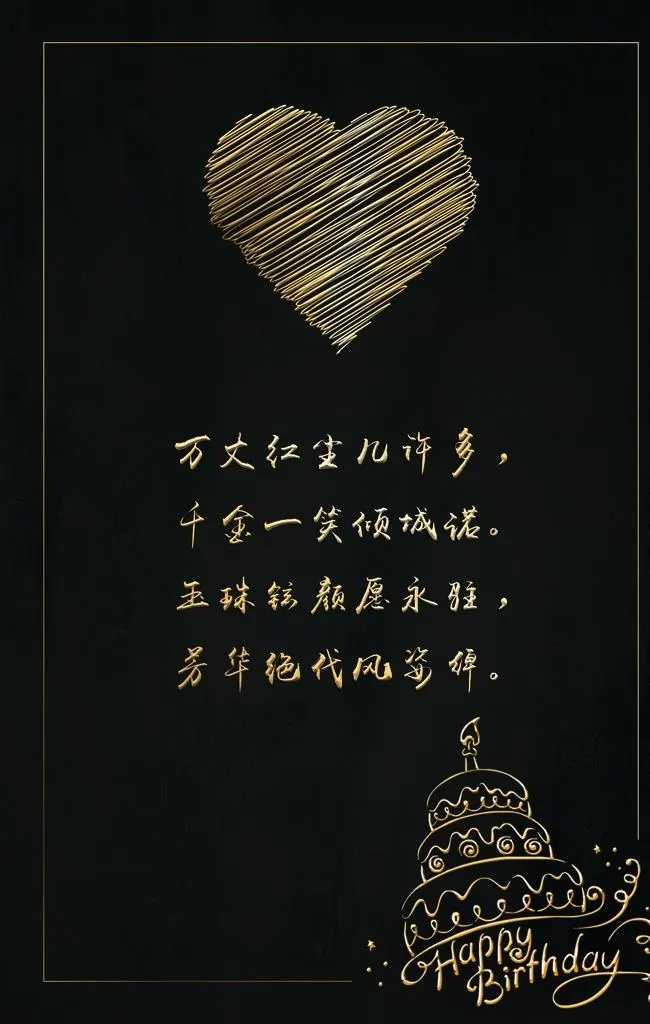 万丈红尘几许多，
千金一笑倾城诺。
玉珠铉颜愿永驻，
芳华绝代风姿绰。
Happy
Birthday